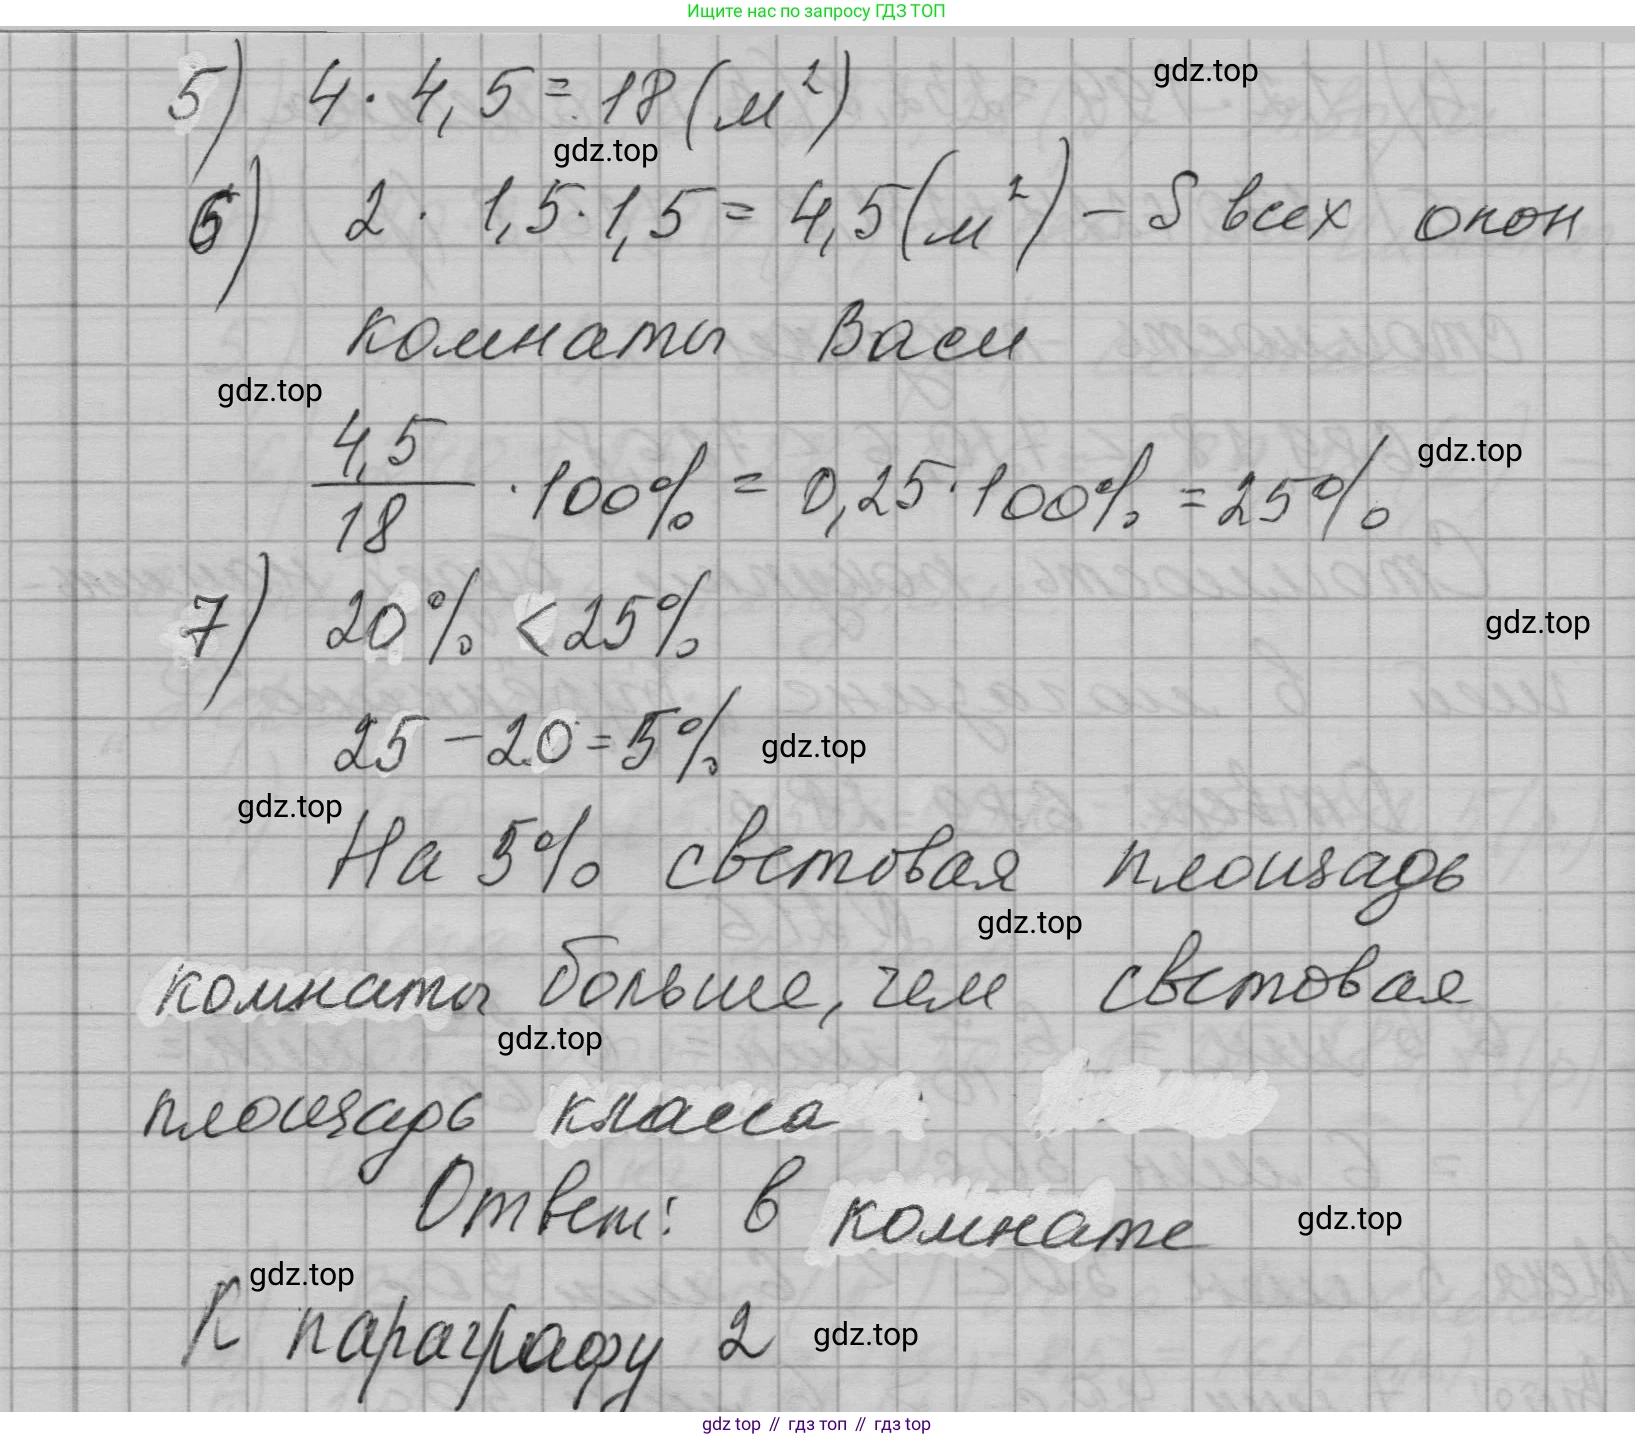 Ищите нас по запросу ГДЗ ТОП
gdz.top
5) 4 · 4,5 = 18 (м²)
gdz.top
6) 2 · 1,5 · 1,5 = 4,5 (м²) – S всех окон
комнаты Васи
gdz.top
4,5/18 · 100% = 0,25 · 100% = 25%
gdz.top
7) 20% < 25%
gdz.top
25 – 20 = 5%
gdz.top
gdz.top
На 5% световая площадь
gdz.top
комнаты больше, чем световая
gdz.top
площадь класса
Ответ: в комнате
gdz.top
gdz.top
К параграфу 2
gdz.top
gdz top // гдз топ // гдз top